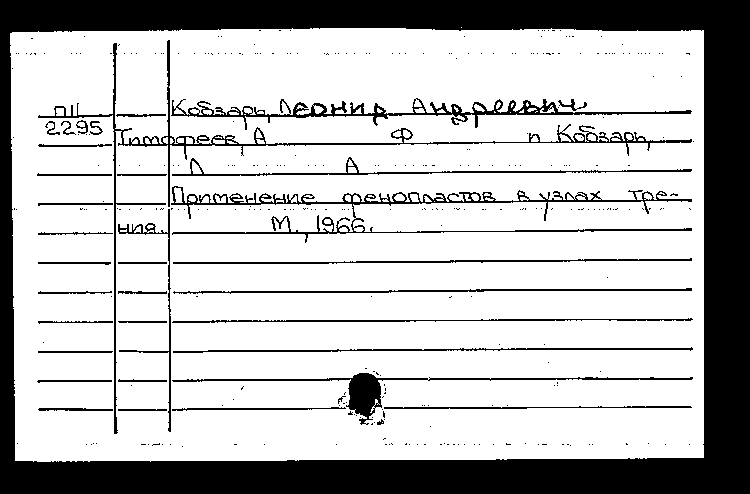 ПП Кобзарь, Леонид Андреевич
2295 Тимофеев, А Ф и Кобзарь,
Л А
Применение фенопластов в узлах тре-
ния. М., 1966.